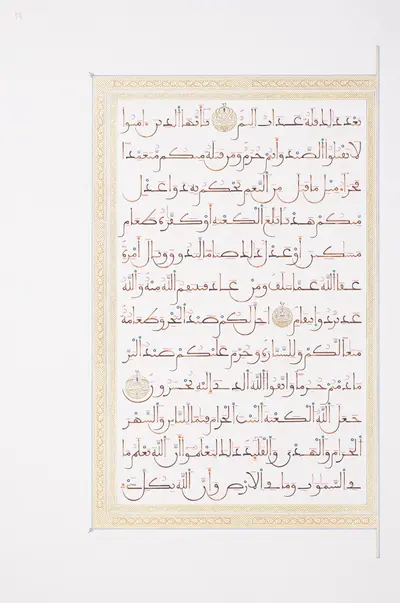 بعد ذلك فله عذاب أليم يأيها الذين ءامنوا
لا تقتلوا الصيد وأنتم حرم ومن قتله منكم متعمدا
فجزاء مثل ما قتل من النعم يحكم به ذوا عدل
منكم هديا بلغ الكعبة أو كفرة طعام
مسكين أو عدل ذلك صياما ليذوق وبال أمره
عفا الله عما سلف ومن عاد فينتقم الله منه والله
عزيز ذو انتقام أحل لكم صيد البحر وطعامه
متعا لكم وللسيارة وحرم عليكم صيد البر
ما دمتم حرما واتقوا الله الذي إليه تحشرون
جعل الله الكعبة البيت الحرام قيما للناس والشهر
الحرام والهدي والقلئد ذلك لتعلموا أن الله يعلم ما
في السموت وما في الأرض وأن الله بكل شيء